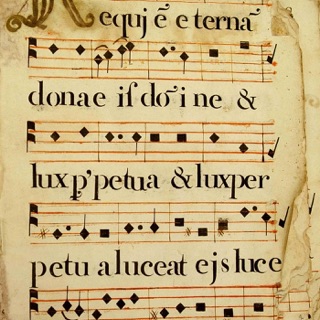 Requjẽ e ternã
donae iſ dõ i ne &
lux p'petua & luxper
petu a luceat ejs luce